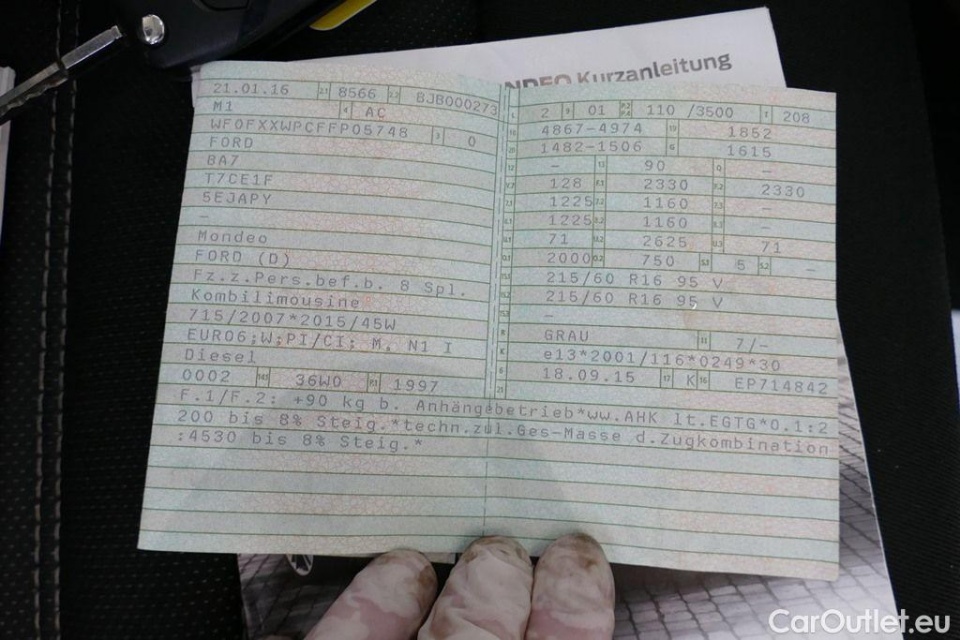 NDEO Kurzanleitung
21.01.16 2.1 8566 2.2 BJB000273
M1 4 AC
WF0FXXWPCFFP05748 3 0
FORD
BA7
T7CE1F
5EJAPY
–
Mondeo
FORD (D)
Fz.z.Pers.bef.b. 8 Spl.
Kombilimousine
715/2007*2015/45W
EURO6;W;PI/CI; M, N1 I
Diesel
0002 14.1 36W0 P.1 1997
L 2 9 01 P.2 P.4 110 /3500 T 208
18 4867-4974 19 1852
20 1482-1506 G 1615
12 – 13 90 Q –
V.7 128 F.1 2330 F.2 2330
7.1 1225 7.2 1160 7.3 –
8.1 1225 8.2 1160 8.3 –
U.1 71 U.2 2625 U.3 71
O.1 2000 O.2 750 S.1 5 S.2 –
15.1 215/60 R16 95 V
15.2 215/60 R16 95 V
15.3 –
R GRAU 11 7/–
K e13*2001/116*0249*30
6 18.09.15 17 K 16 EP714842
21
F.1/F.2: +90 kg b. Anhängebetrieb*ww.AHK lt.EGTG*0.1:2
200 bis 8% Steig.*techn.zul.Ges-Masse d.Zugkombination
:4530 bis 8% Steig.*
CarOutlet.eu